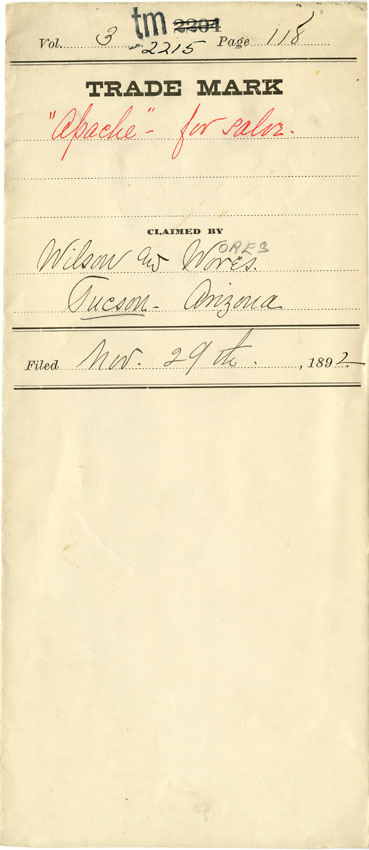 tm 2204
Vol. 3 2215 Page 118
TRADE MARK
"Apache" - for salve.
CLAIMED BY
ORES
Wilson and Wores.
Tucson - Arizona
Filed Nov. 29th. , 1892.